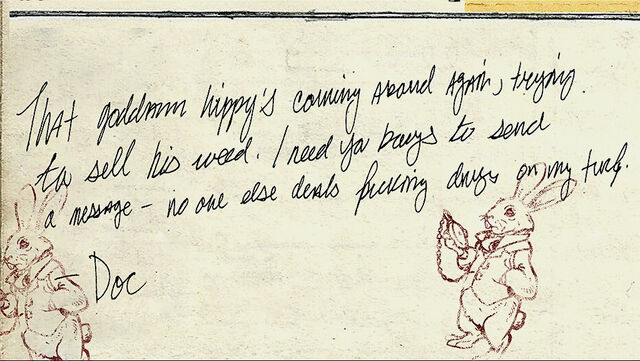 That goddamn hippy's coming around again, trying
to sell his weed. I need ya boys to send
a message – no one else deals fucking drugs on my turf.
– Doc